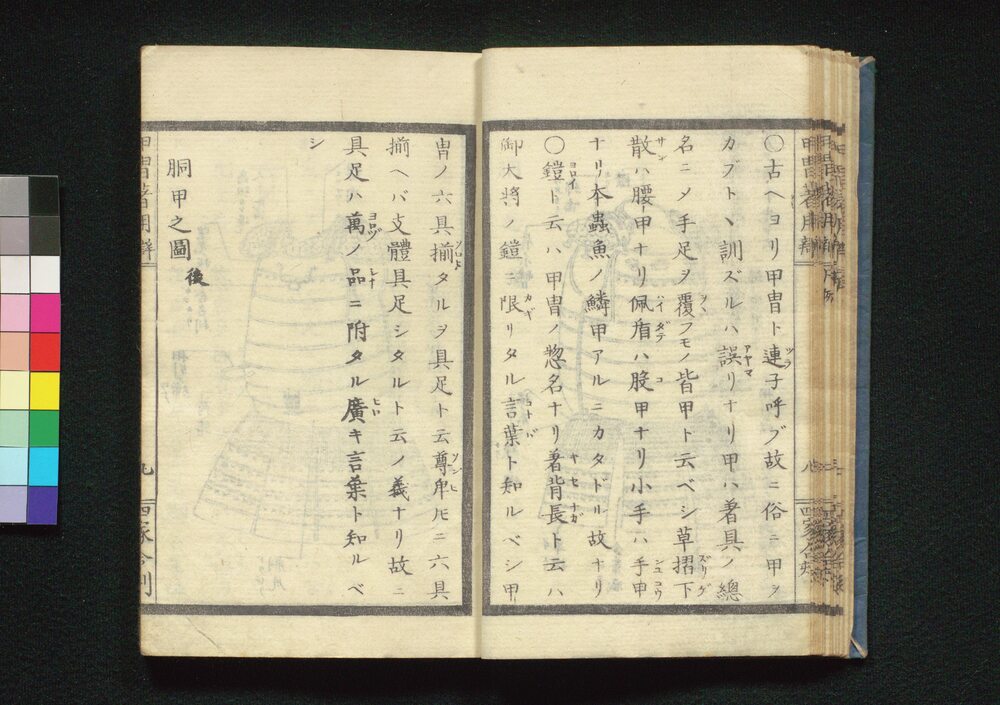 〇古ヘヨリ甲冑ト連子呼ブ故ニ俗ニ甲ヲ
カブトヽ訓ズルハ誤リナリ甲ハ著具ノ總
名ニメ手足ヲ覆フモノ皆甲ト云ベシ草摺下
散ハ腰甲ナリ佩盾ハ股甲ナリ小手ハ手甲
ナリ本蟲魚ノ鱗甲アルニカタドル故ナリ
〇鎧ト云ハ甲冑ノ惣名ナリ著背長ト云ハ
御大将ノ鎧ニ限リタル言葉ト知ルベシ甲
冑ノ六具揃タルヲ具足ト云尊卑𪜈ニ六具
揃ヘバ支體具足シタルト云ノ義ナリ故ニ
具足ハ萬ノ品ニ附タル廣キ言葉ト知ルベ
シ
胴甲之圖後
甲冑著用辨
九